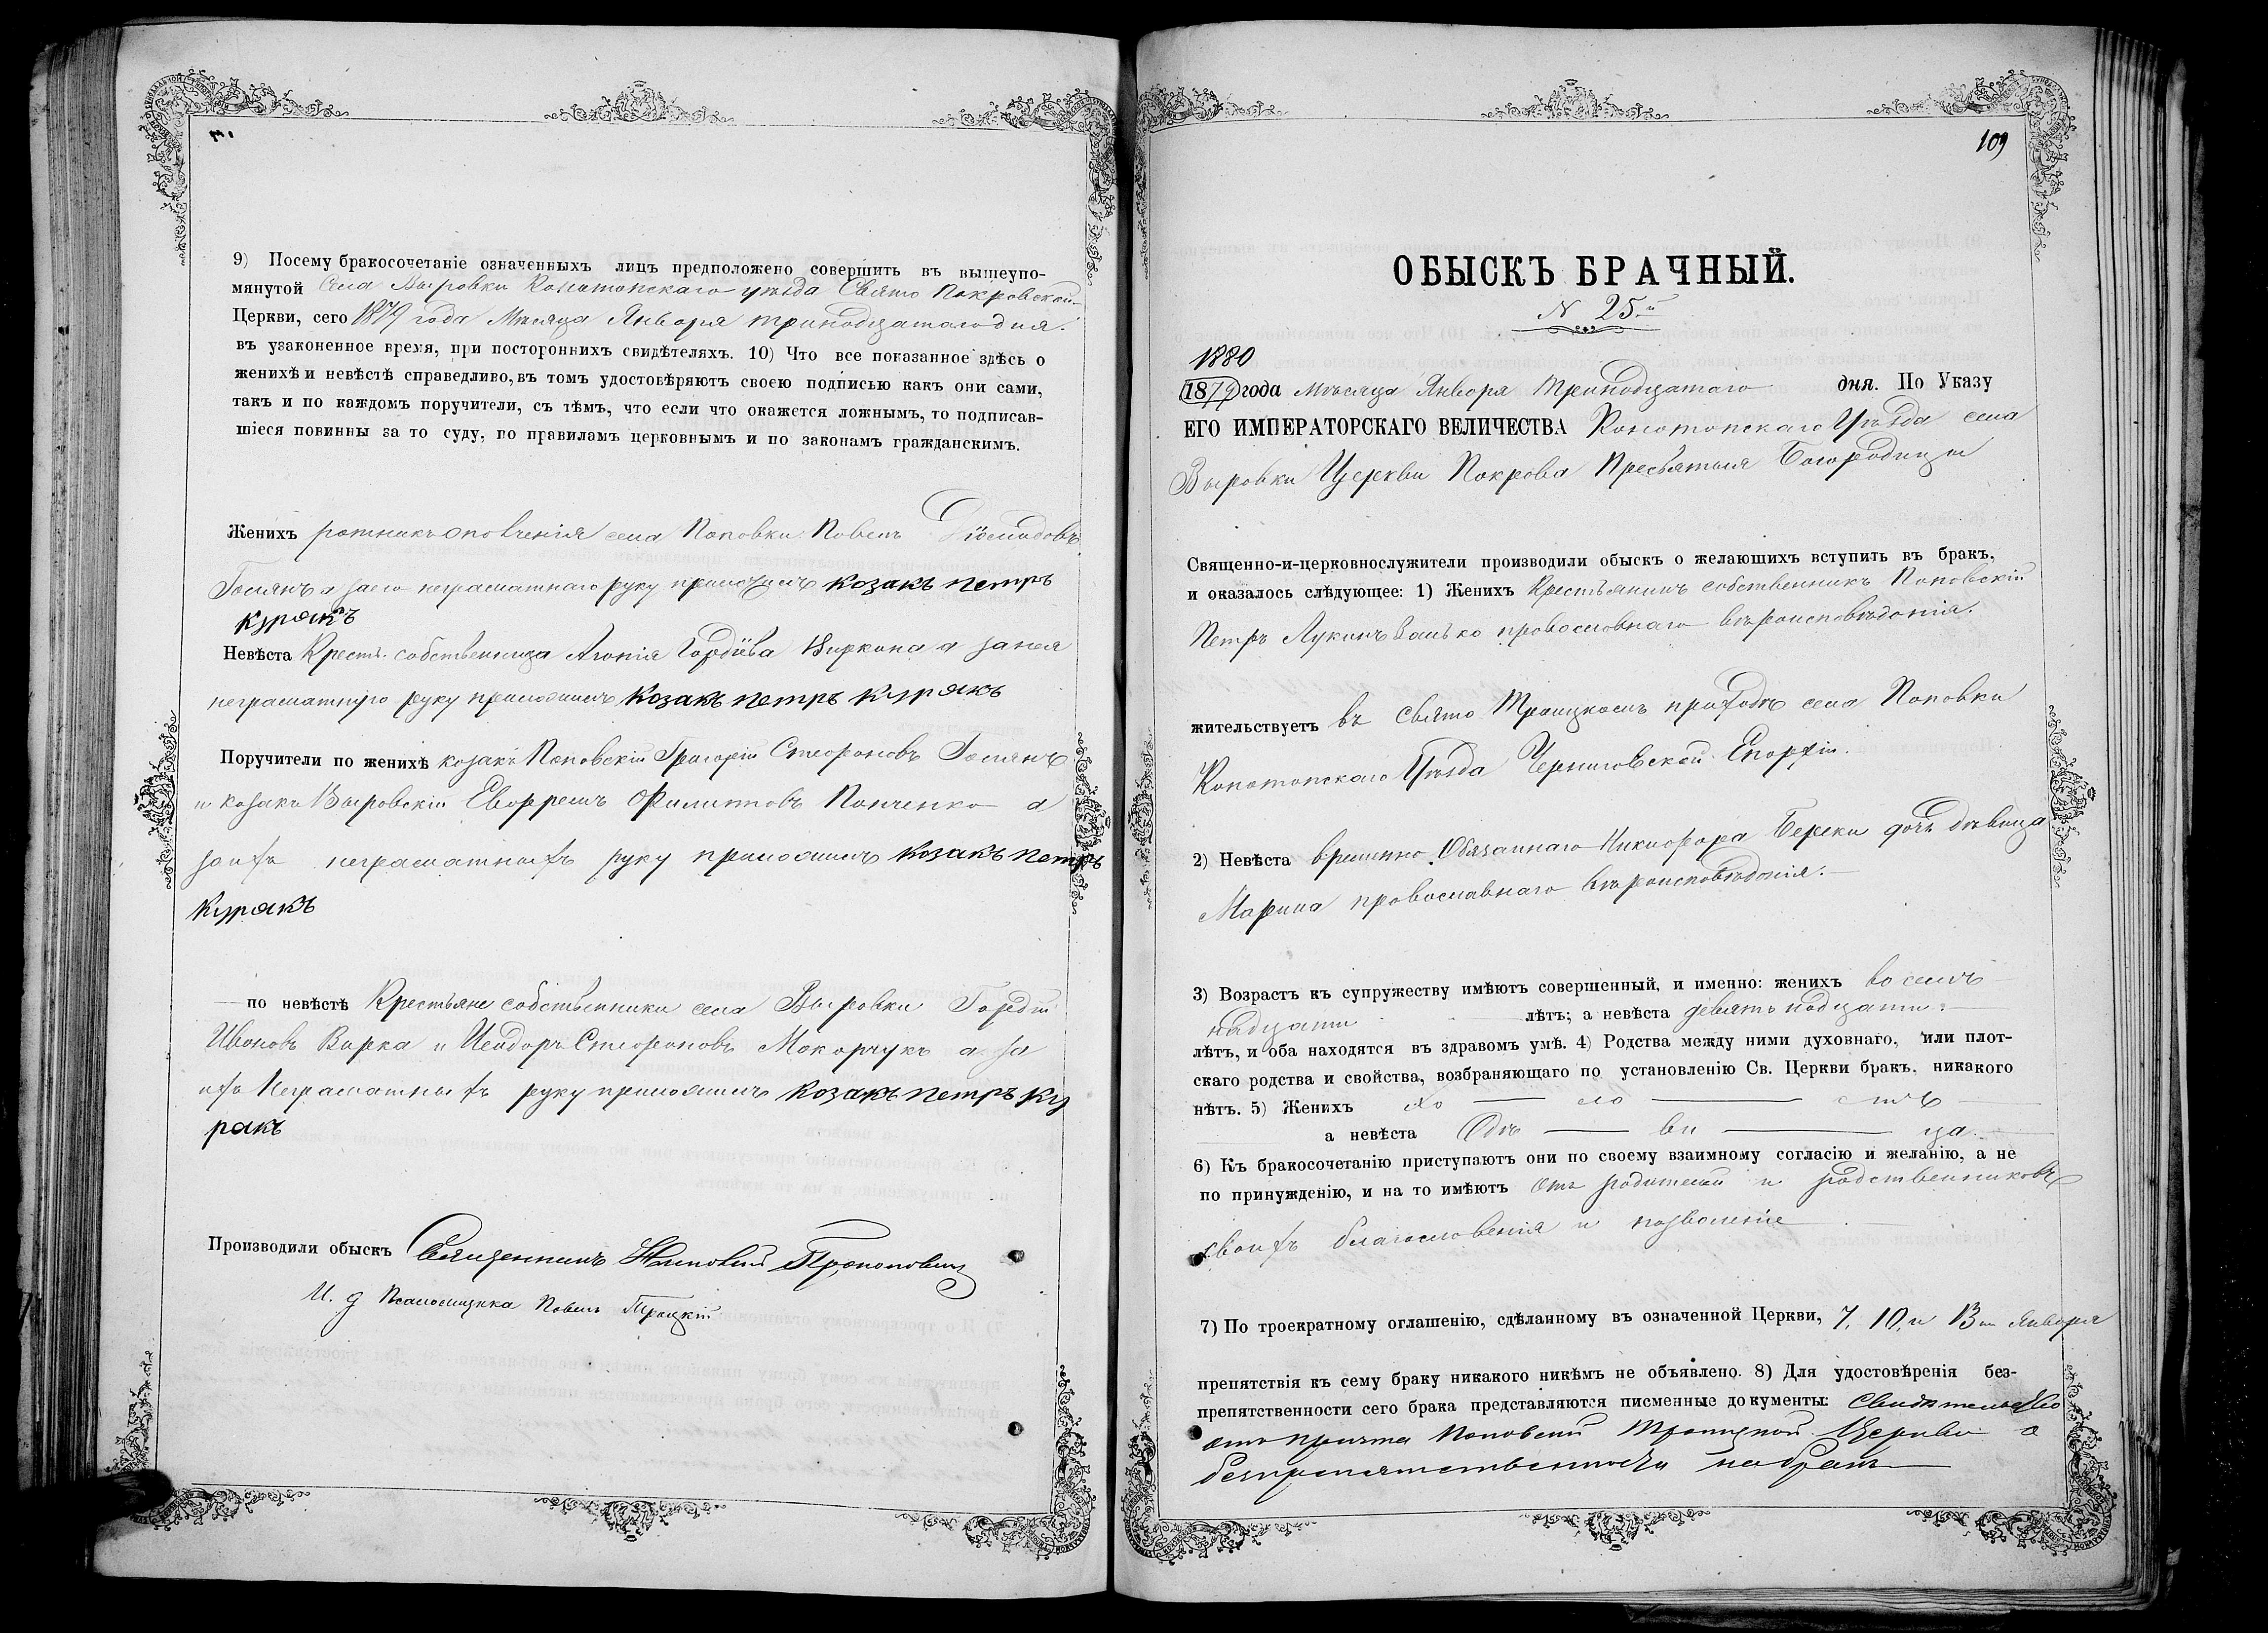 9) Посему бракосочетаніе означенныхъ лицъ предположено совершить въ вышеупо-
мянутой Села Выровки Конотопскаго уѣзда Свято Покровской
Церкви, сего 1879 года Мѣсяца Января тринадцатаго дня.
въ узаконенное время, при постороннихъ свидѣтеляхъ. 10) Что все показанное здѣсь о
женихѣ и невѣстѣ справедливо, въ томъ удостовѣряютъ своею подписью какъ они сами,
такъ и по каждомъ поручители, съ тѣмъ, что если что окажется ложнымъ, то подписав-
шіеся повинны за то суду, по правиламъ церковнымъ и по законамъ гражданскимъ.
Женихъ ратникъ ополченія села Поповки Павелъ Діомидовъ
а за его неграматнаго руку приложилъ козакъ петръ
Курякъ
Невѣста Крест. собственница Агапія Гордіева а за нея
неграматную руку приложилъ козакъ петръ курякъ
Поручители по женихѣ козакъ Поповскій Григорій Стефановъ
и козакъ Выровскій Евфремъ Филиповъ Панченко а
за ихъ неграматныхъ руку приложилъ козакъ петръ
Курякъ
по невѣстѣ Крестьяне собственники села Выровки Гордій
Ивановъ Вирка и Исидоръ Стефановъ Макарчукъ а за
ихъ Неграматныхъ руку приложилъ козакъ петръ ку
ракъ
Производили обыскъ Священникъ Прокоповичъ
И. д Псаломщика Павелъ Троцкій
109
ОБЫСКЪ БРАЧНЫЙ.
N 25й
1880
1879 года мѣсяца Января Тринадцатаго дня. По Указу
ЕГО ИМПЕРАТОРСКАГО ВЕЛИЧЕСТВА Конотопскаго Уѣзда села
Выровки Церкви Покрова Пресвятыя Богородицы
Священно-и-церковнослужители производили обыскъ о желающихъ вступить въ бракъ,
и оказалось слѣдующее: 1) Женихъ Крестьянинъ собственникъ Поповскій
Петръ Лукинъ православнаго вѣроисповѣданія.
жительствуетъ въ Свято Троицкомъ приходѣ села Поповки
Конотопскаго Уѣзда Черниговской Епархіи.
2) Невѣста временно Обязаннаго Никифора Береки дочь дѣвица
Марина православнаго вѣроисповѣданія.
3) Возрастъ къ супружеству имѣютъ совершенный, и именно: женихъ восемъ
надцати лѣтъ; а невѣста девятьнадцати.
лѣтъ, и оба находятся въ здравомъ умѣ. 4) Родства между ними духовнаго, или плот-
скаго родства и свойства, возбраняющаго по установленію Св. Церкви бракъ, никакого
нѣтъ. 5) Женихъ хо — ло — стъ
а невѣста Дѣ — ви — ца.
6) Къ бракосочетанію приступаютъ они по своему взаимному согласію и желанію, а не
по принужденію, и на то имѣютъ отъ родителей и родственниковъ
своихъ благословенія и позволеніе
7) По троекратному оглашенію, сдѣланному въ означенной Церкви, 7, 10, и 13го Января
препятствія къ сему браку никакого никѣмъ не объявлено. 8) Для удостовѣренія без-
препятственности сего брака представляются писменные документы: Свидѣтельство
отъ причта Поповской Троицкой Церкви о
безпрепятственности на бракъ